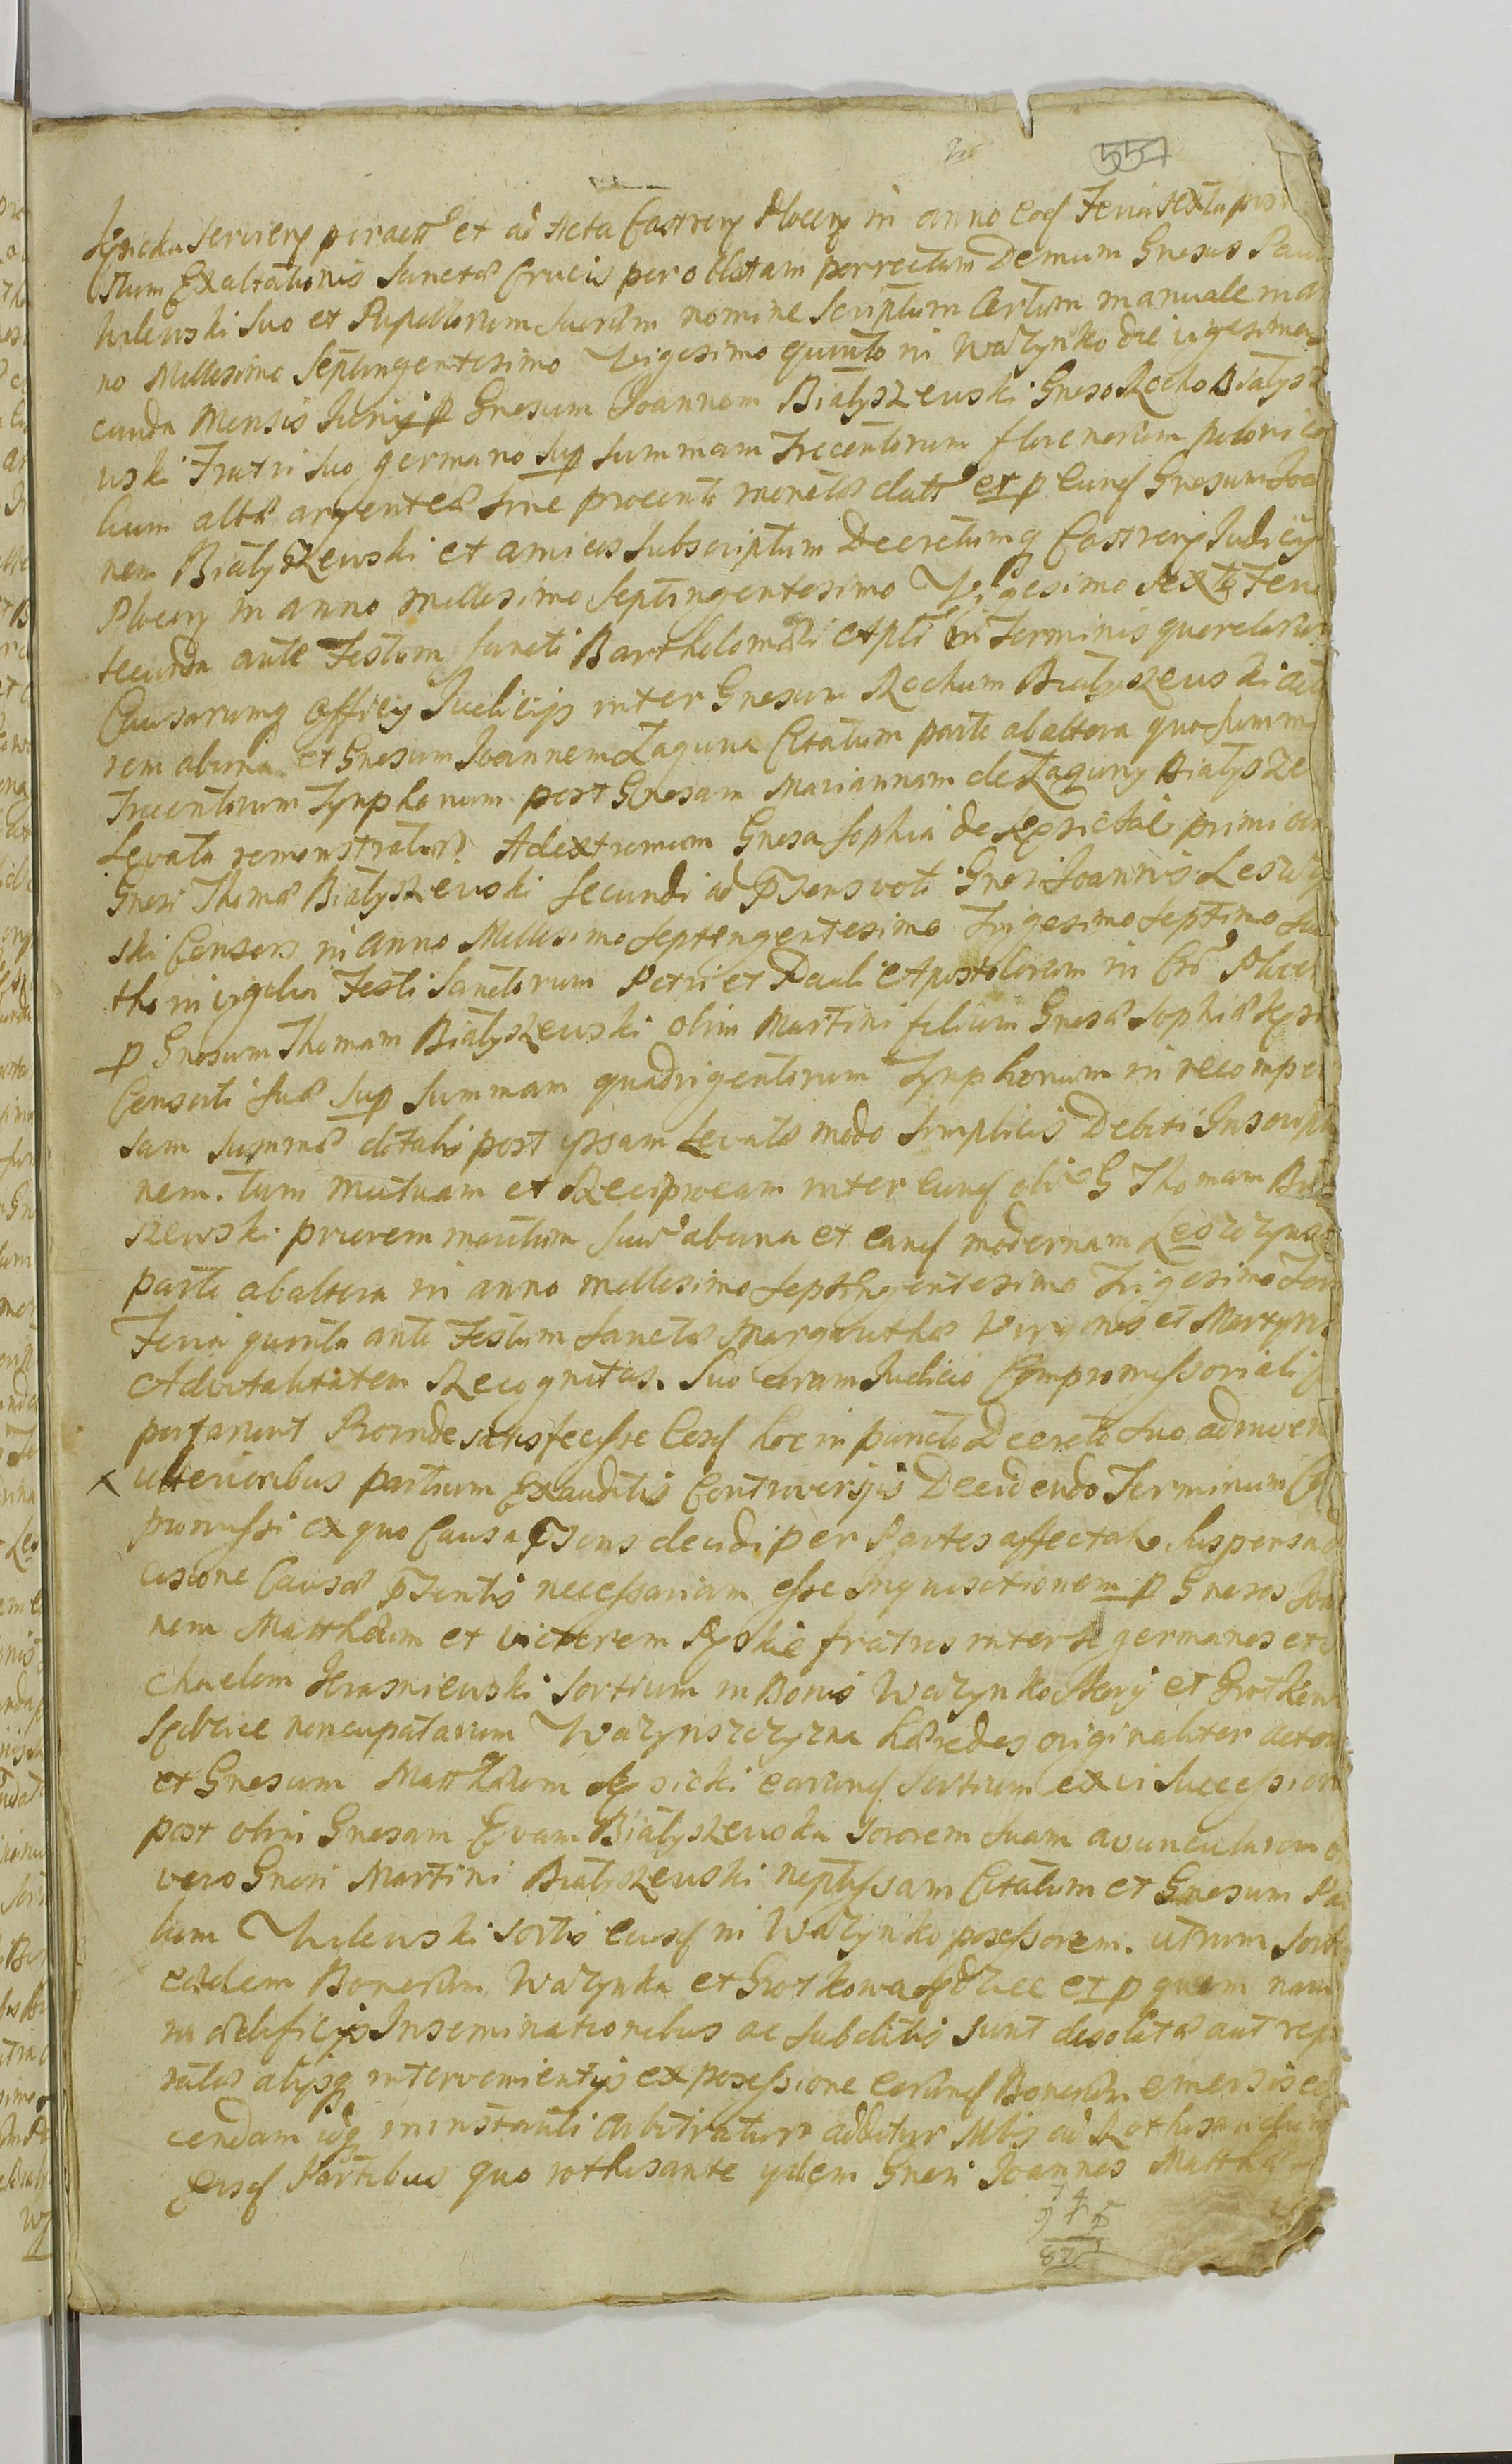 557
Kęsicka Serviens peractt et ad Acta Castren Plocen in anno eod Feria sexta post
stum Exaltationis Sanctæ Crucis per oblatam porrectum Demum Gnosus Paul
hilewski suo et Pupillorum suorum nomine Scriptum certum manuale in an
no Millesimo Septingentesimo Vigesimo quinto in Wazynko die vigesima se
cunda Mensis Junij p Gnosum Joannem Białyszewski Gnoso Rocho Białysz
wski Fratri suo germano sup summam Trecentorum florenorum poloni ca
lium altæ argenteæ sine procento monetæ datt et p eund Gnosum Joa
nem Białyszewski et amicos subscriptum Decretumq Castren Judicij
Plocen in anno millesimo septingentesimo Vigesimo sexto Feria
secunda ante Festum Sancti Bartholomæi Apli in Terminis querelarum
Causarumq officij Judicijs inter Gnosum Rochum Białyszewski acto
rem abuna et Gnosum Joannem Laguna Citatum parte abaltera quo summ
Trecentorum Tynphonum post Gnosam Mariannam de Laguny Białysze
Levata remonstratur. Adextremum Gnosa Sophia de Kęsickie primi olim
Gnosi Thomæ Białyszewski secundi ad Psens voti Gnosi Joannis Leszczy
ski Consors in anno Millesimo Septengentesimo Trigesimo Septimo Sab
tho in vigilia Festi Sanctorum Petri et Pauli Apostolorum in Cro Plocen
p Gnosum Thomam Białyszewski olim Martini filium Gnosæ Sophiæ Kęsi
Consorti suæ sup summam quadrigentorum Tynphonum in recompen
sam summæ dotalis post ipsam Levatæ modo simplicis Debiti Inscriptio
nem. Tum mutuam et Reciprocam inter eund olim G Thomam Biały
szewski priorem maritum suum abuna et eand modernam Leszczynska
parte abaltera in anno millesimo septingentesimo Trigesimo Ter
Feria quinta ante Festum Sanctæ Margarithæ Virginis et Martyris
Advitalitatem Recognitas. Suo coram Judicio Compromissoriali
portarunt Proinde satisfecisse eosd hoc in puncto Decreto suo adinven
ulterioribus partium Exauditis Controversijs Decidendo Terminum Co
promissi ex quo Causa Psens decidi per Partes affectatr. Suspensa de
cisione Causæ Psentis necessariam esse Inquisitionem p Gnosos Joa
nem Matthæum et Victorem Kęskie fratres inter se germanos et Mi
chaelem Krasniewski Sortium in Bonis Wazynko Kkery et Grotkow
Spdziee noncupatarum Wazynszczyzna hæredes originaliter actor
et Gnosum Matthæum Kęsicki earund Sortium ex vi Successioni
post olim Gnosam Evam Białyszewska Sororem suam avuncularem o
vero Gnosi Martini Białyszewski neptissam Citatum et Gnosum Pau
lum Chilewski Sortis eiusd in Wazynko possessorem. utrum Sorte
eædem Bonorum Wazynka et Grotkowa Spdziee et p quem nam
in ædificijs Inseminationibus ac Subditis sunt desolatæ aut repa
ratæ alijsq intervenientijs ex possessione eorund Bonorum emersis edu
cendam idq in instanti arbitratur additur Mbis ad Rothisandum
Eisd Partibus quo rothisante ijdem Gnosi Joannes Matthæ